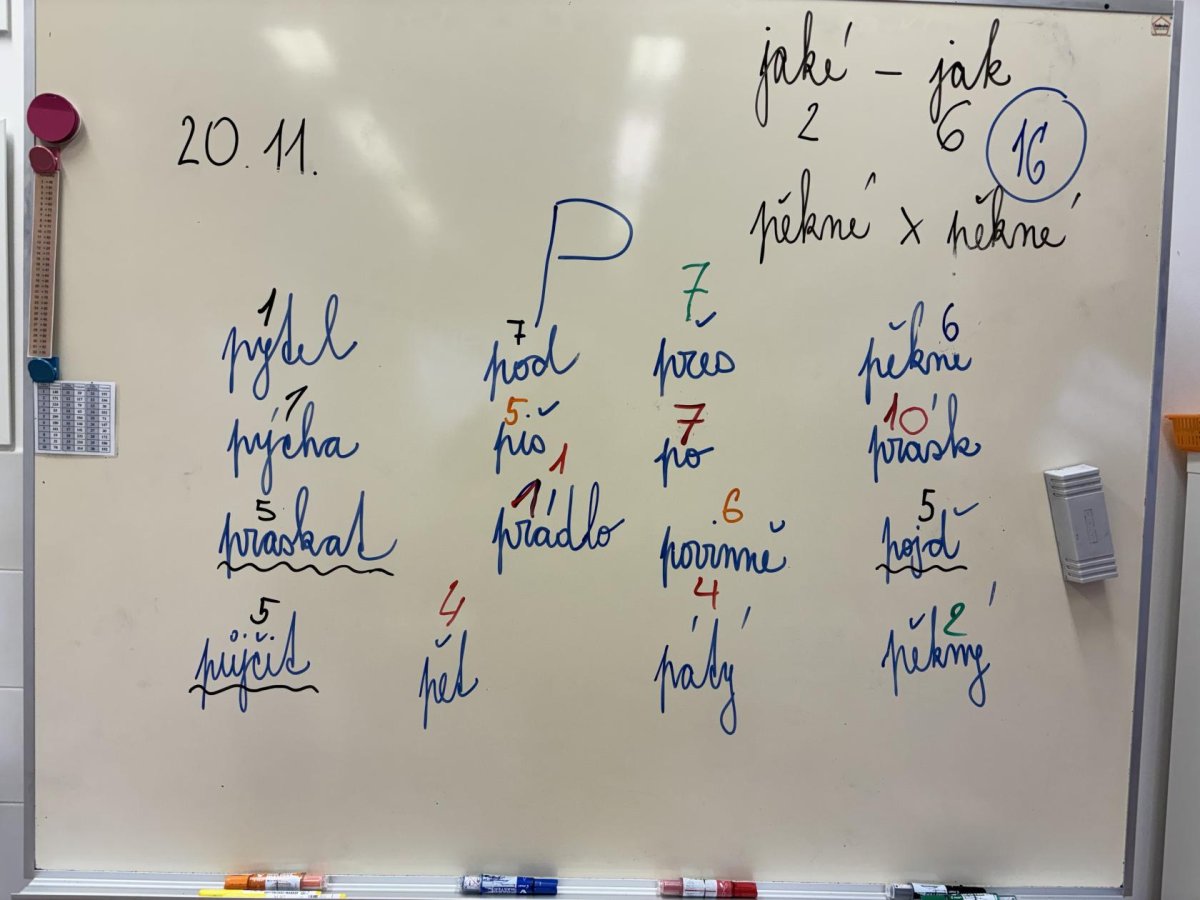 20.11.
jaké - jak
2 6 16
pěkné x pěkné
P
1 7 7 6
pytel pod přes pěkně
1 5 7 10
pýcha piš po prásk
5 1 1 6 5
praskat prádlo povinně pojď
5 4 4 2
půjčit pět pátý pěkný